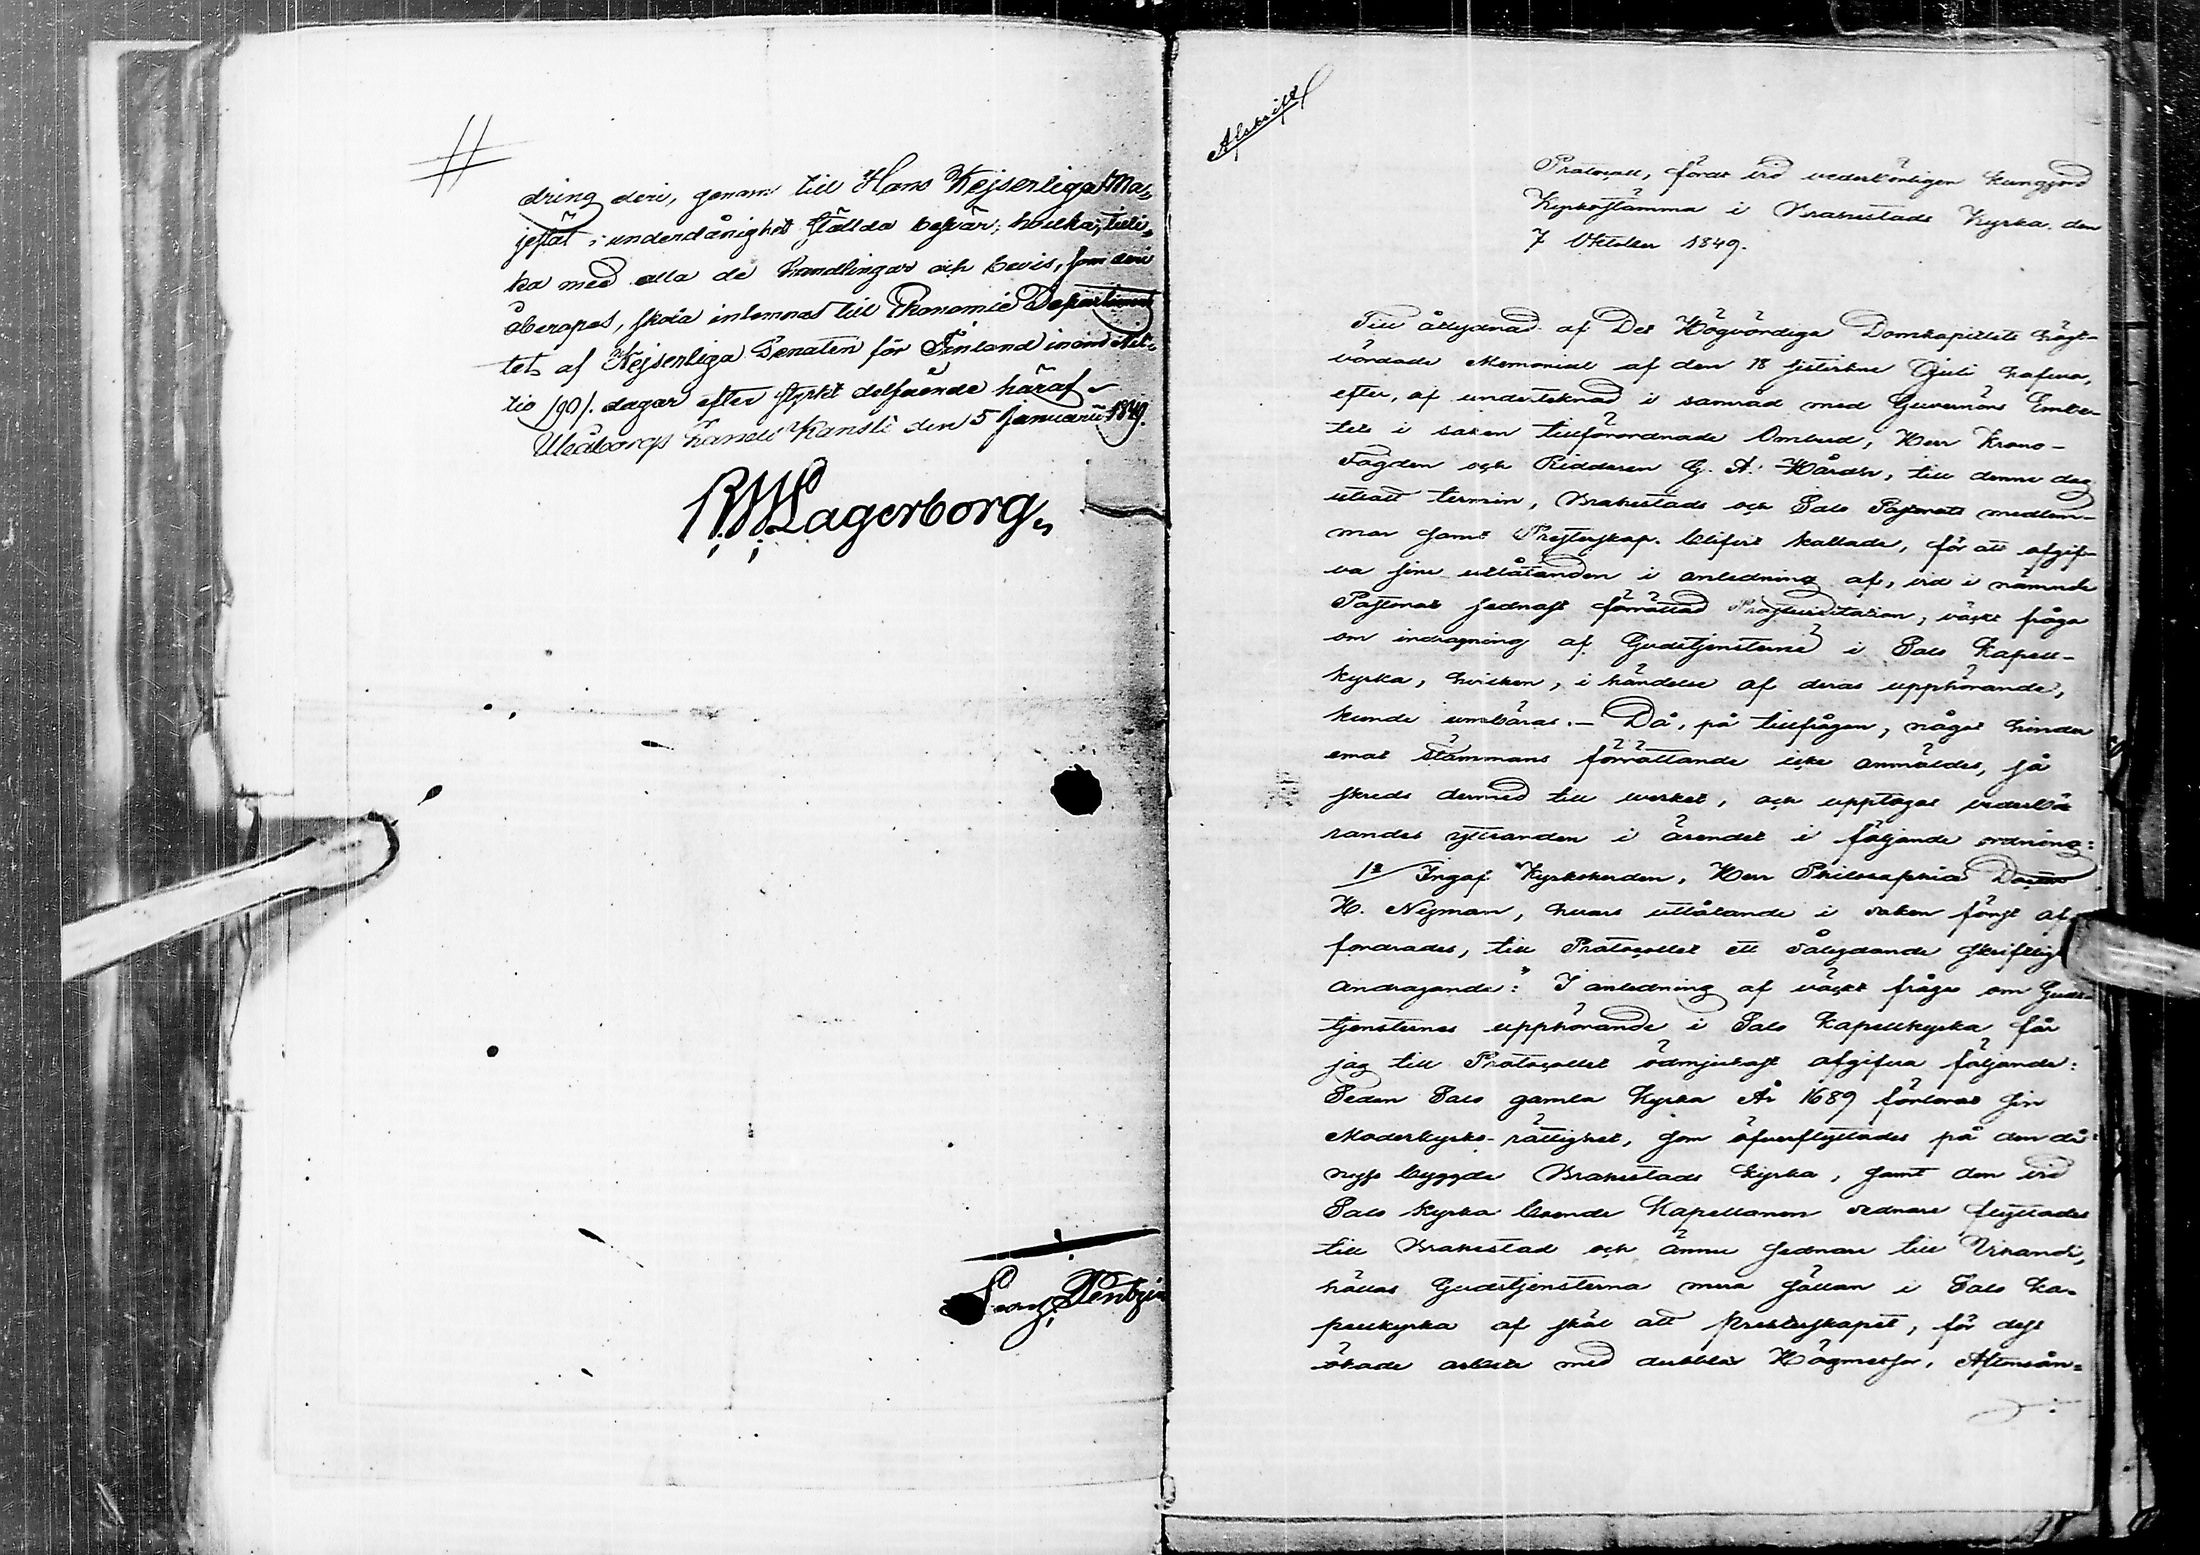 dring deri, genom till Hans Kejserliga Ma-
jestät i underdånighet stälda besvär; hvilka, tilli-
ka med alla de handlingar och bevis, som deri
åberopas, skola inlemnas till Ekonomie Departemen-
tet af Kejserliga Senaten för Finland inom Nit-
tio /90/. dagar efter styrkt delfående häraf.
Uleåborgs Landts Kansli den 5 Januarii 1849.
R. W. Lagerborg.
Georg
Afskrift
Protocoll, fördt vid vederbörligen kungjord
Kyrkostämma i Brahestads Kyrka, den
7 October 1849.
Till åtlydnad af Det Högvördiga Domkapitlets högt-
vördade Memorial af den 18 sistledne Juli hafva,
efter, af undertecknad i samråd med Guvernörs Embe-
tets i saken tillförordnade Ombud, Herr Krono-
fogden och Riddaren G. A. Hårdh, till denne dag
utsatt termin, Brahestads och Salo Pastorats medlem-
mar samt Presterskap blifvit kallade, för att afgif-
va sine utlåtanden i anledning af, vid i nämnde
Pastorat sednast förrättad Prostvisitation, väckt fråga
om indragning af Gudstjensterne i Salo Kapell-
kyrka, hvilken, i händelse af deras upphörande,
kunde umbäras. – Då, på tillfrågan, något hinder
emot stämmans förrättande icke anmäldes, så
skreds dermed till verket, och upptogos vederbö-
randes yttranden i ärendet i följande ordning:
1o/ Ingaf Kyrkoherden, Herr Philosophiæ Doctorn
H. Nyman, hvars utlåtande i saken först af-
fordrades, till Protocollet ett sålydande skriftligt
andragande: "I anledning af väckt fråga om Guds-
tjensternes upphörande i Salo Kapellkyrka får
jag till Protocollet ödmjukast afgifva följande:
Sedan Salo gamla Kyrka År 1689 förlorat sin
Moderkyrko-rättighet, som öfverflyttades på den då
nyss byggde Brahestads Kyrka, samt den vid
Salo Kyrka boende Kapellanen sednare flyttades
till Brahestad och ännu sednare till Vihandi,
hållas Gudstjensterna mera sällan i Salo Ka-
pellkyrka af skäl att Presterskapet, för dess
ökade arbete med dubbla Högmessor, Aftonsån-